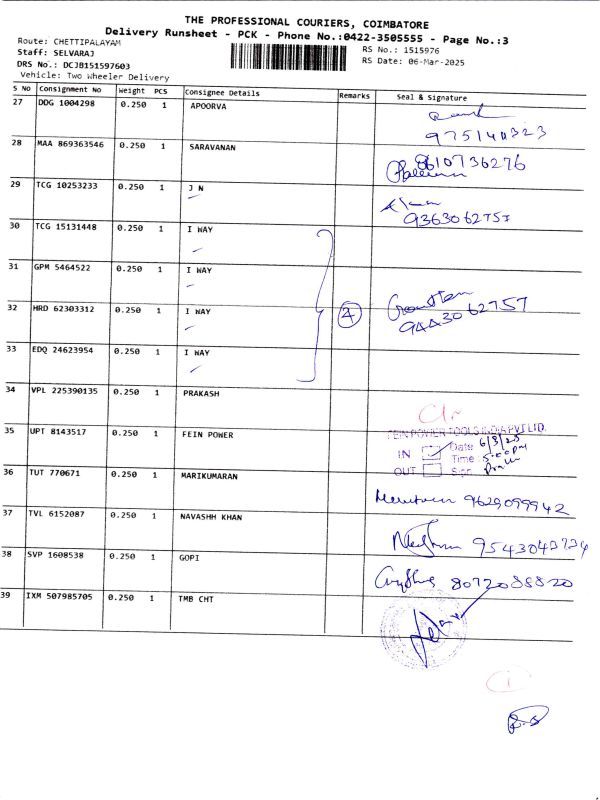 THE PROFESSIONAL COURIERS, COIMBATORE
Delivery Runsheet - PCK - Phone No.:0422-3505555 - Page No.:3
Route: CHETTIPALAYAM
RS No.: 1515976
Staff: SELVARAJ
RS Date: 06-Mar-2025
DRS No.: DCJB151597603
Vehicle: Two Wheeler Delivery
S No Consignment No Weight PCS Consignee Details Remarks Seal & Signature
27 DDG 1004298 0.250 1 APOORVA
28 MAA 869363546 0.250 1 SARAVANAN 8610736276
29 TCG 10253233 0.250 1 J N
9363062757
30 TCG 15131448 0.250 1 I WAY
31 GPM 5464522 0.250 1 I WAY
32 HRD 62303312 0.250 1 I WAY 4
33 EDQ 24623954 0.250 1 I WAY
34 VPL 225390135 0.250 1 PRAKASH
35 UPT 8143517 0.250 1 FEIN POWER
FEIN POWER TOOLS INDIA PVT LTD.
IN Date 6/3/25
Time 5:00 PM
OUT Sign
36 TUT 770671 0.250 1 MARIKUMARAN
9629099942
37 TVL 6152087 0.250 1 NAVASHH KHAN
38 SVP 1608538 0.250 1 GOPI
8072088820
39 IXM 507985705 0.250 1 TMB CHT
1